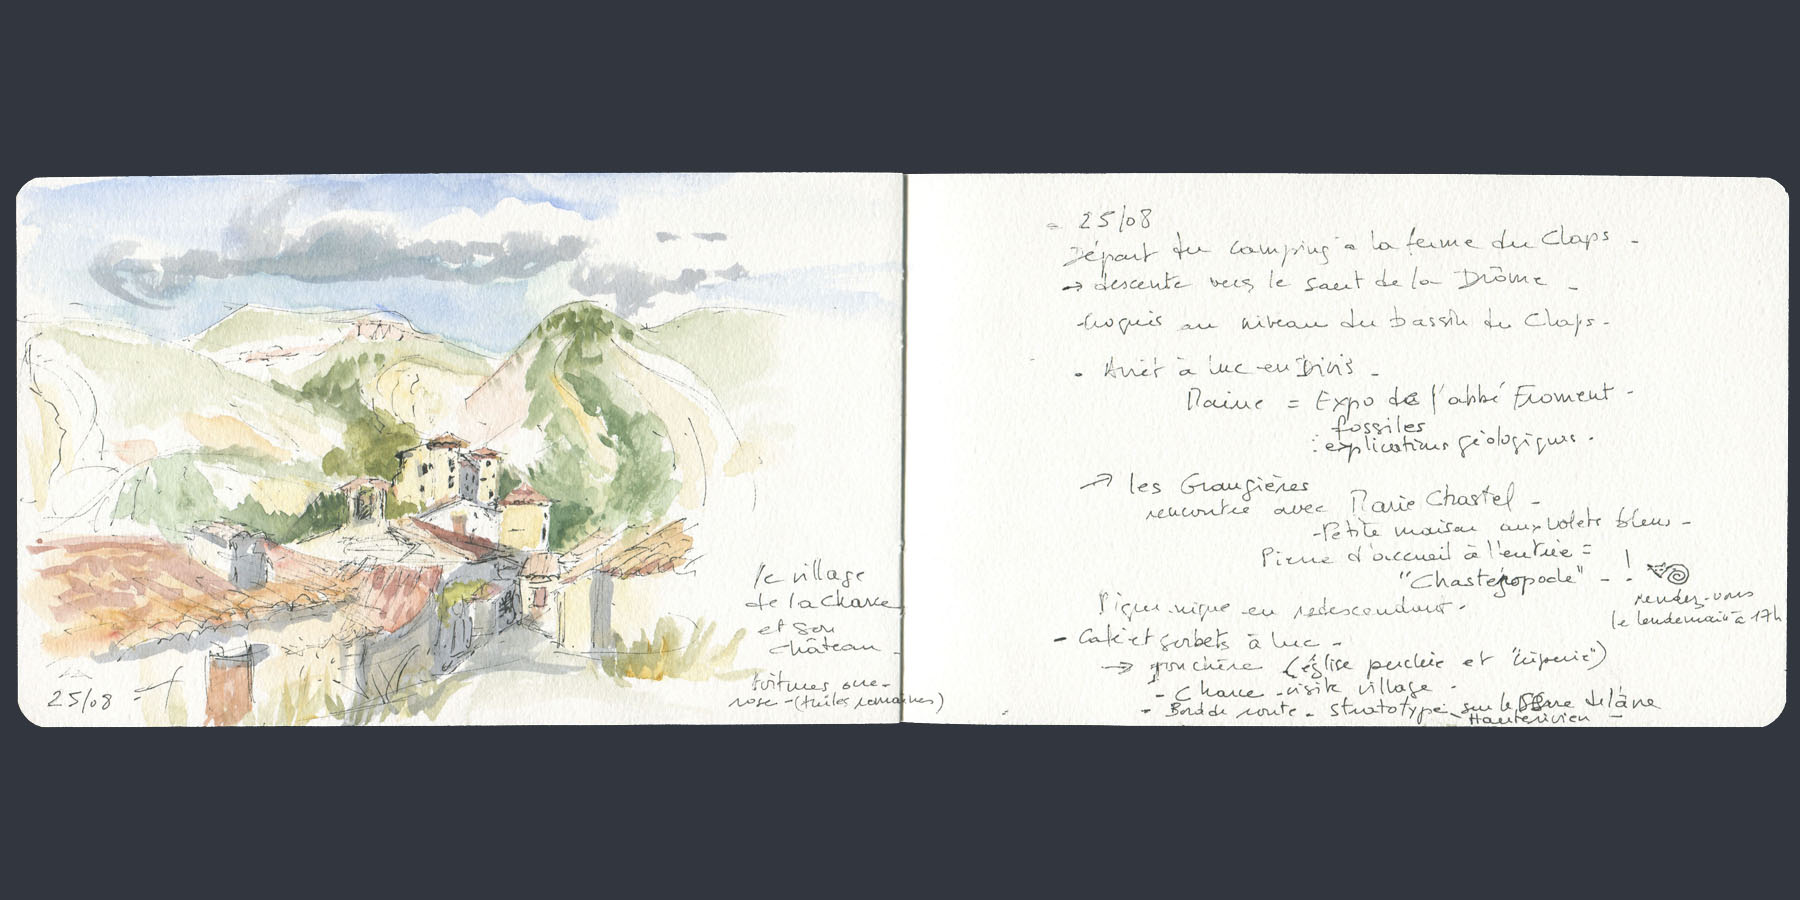 le village
de la Charce
et son
château -
toitures ocre-
rose - (tuiles romaines)
25/08 -
25/08
Départ du camping à la ferme du Claps -
→ descente vers le saut de la Drôme -
- Croquis au niveau du bassin du Claps -
• Arrêt à Luc-en-Diois -
Mairie = Expo de l'abbé Froment -
fossiles
: explications géologiques -
→ les Grangières
rencontre avec Marie Chastel -
- Petite maison aux volets bleus -
Pierre d'accueil à l'entrée =
"Chastéropode" - !
rendez-vous
le lendemain à 17h
Pique-nique en redescendant -
- Café et sorbets à Luc -
→ (église perchée et
- Charce - visite village -
- Bord de route - Stratotype sur le Serre de l'âne
Hauterivien -